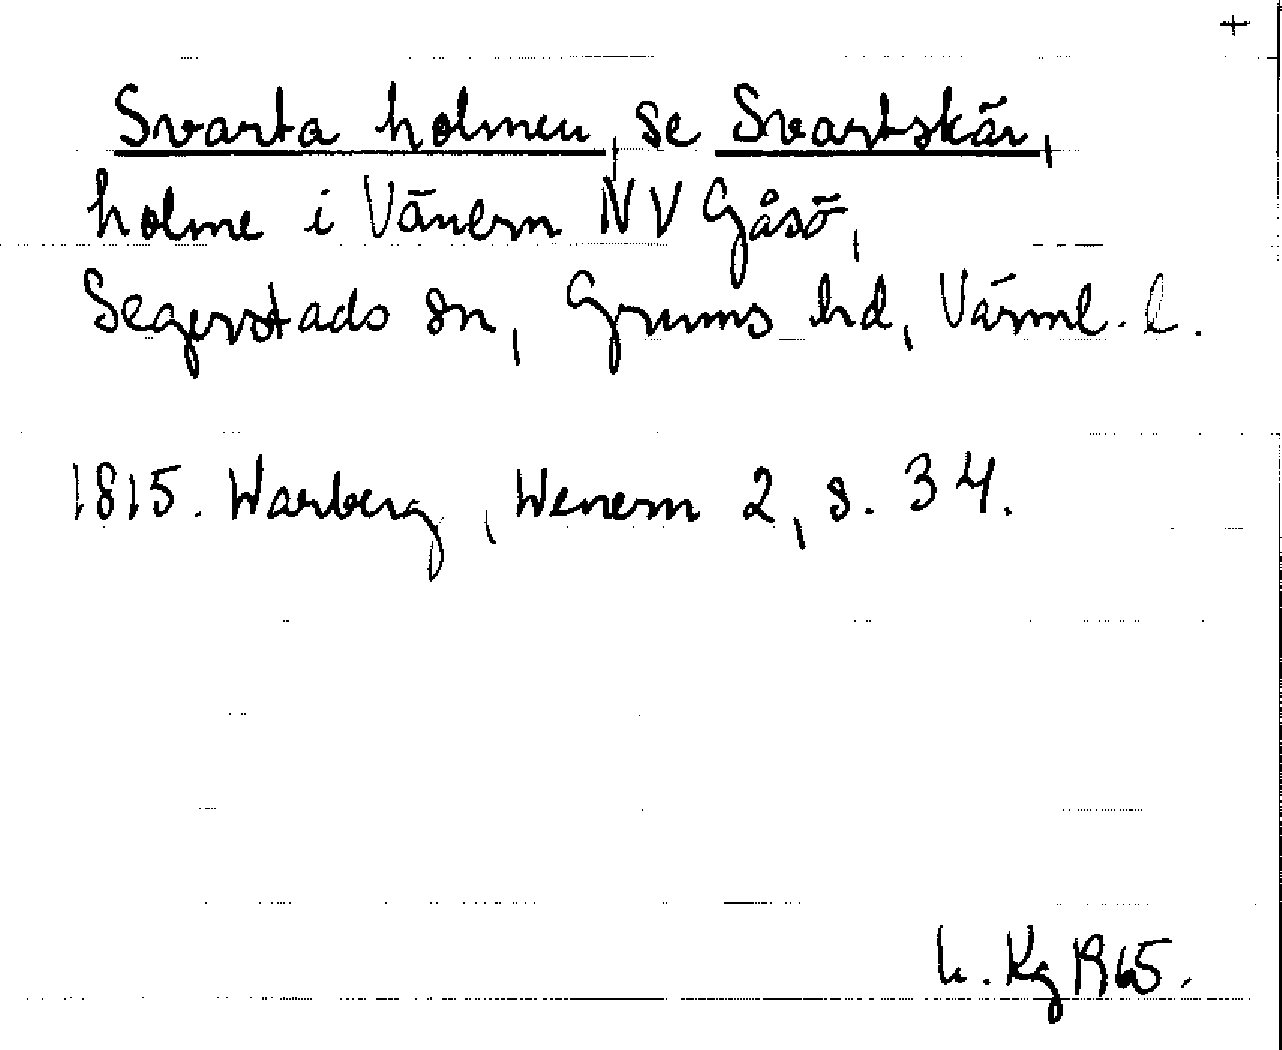 +
Svarta holmen, se Svartskär,
holme i Vänern NV Gåsö,
Segerstads sn, Grums hd, Värml. l.
1815. Warberg, Wenern 2, s. 34.
Kg 1965.